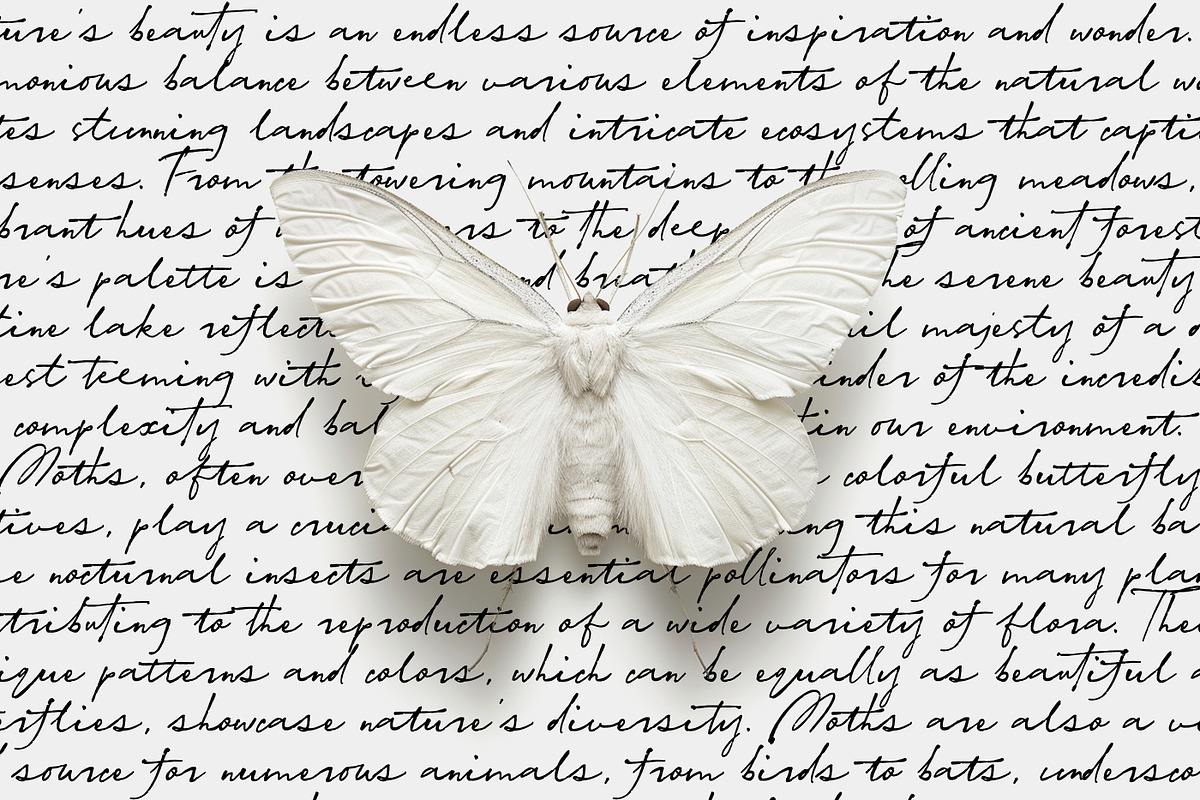 ture's beauty is an endless source of inspiration and wonder.
monious balance between various elements of the natural
tes stunning landscapes and intricate ecosystems that capti
senses. From the towering mountains to the olling meadows,
brant hues of rs to the deep of ancient forest
re's palette is nd breat he serene beauty
tine lake reflect il majesty of a
est teeming with inder of the incredi
complexity and bal tin our environment.
Moths, often over colorful butterfly
tives, play a cruci ng this natural ba
e nocturnal insects are essential pollinators for many plan
tributing to the reproduction of a wide variety of flora. Thei
ique patterns and colors, which can be equally as beautiful a
erflies, showcase nature's diversity. Moths are also a v
source for numerous animals, from birds to bats, undersco